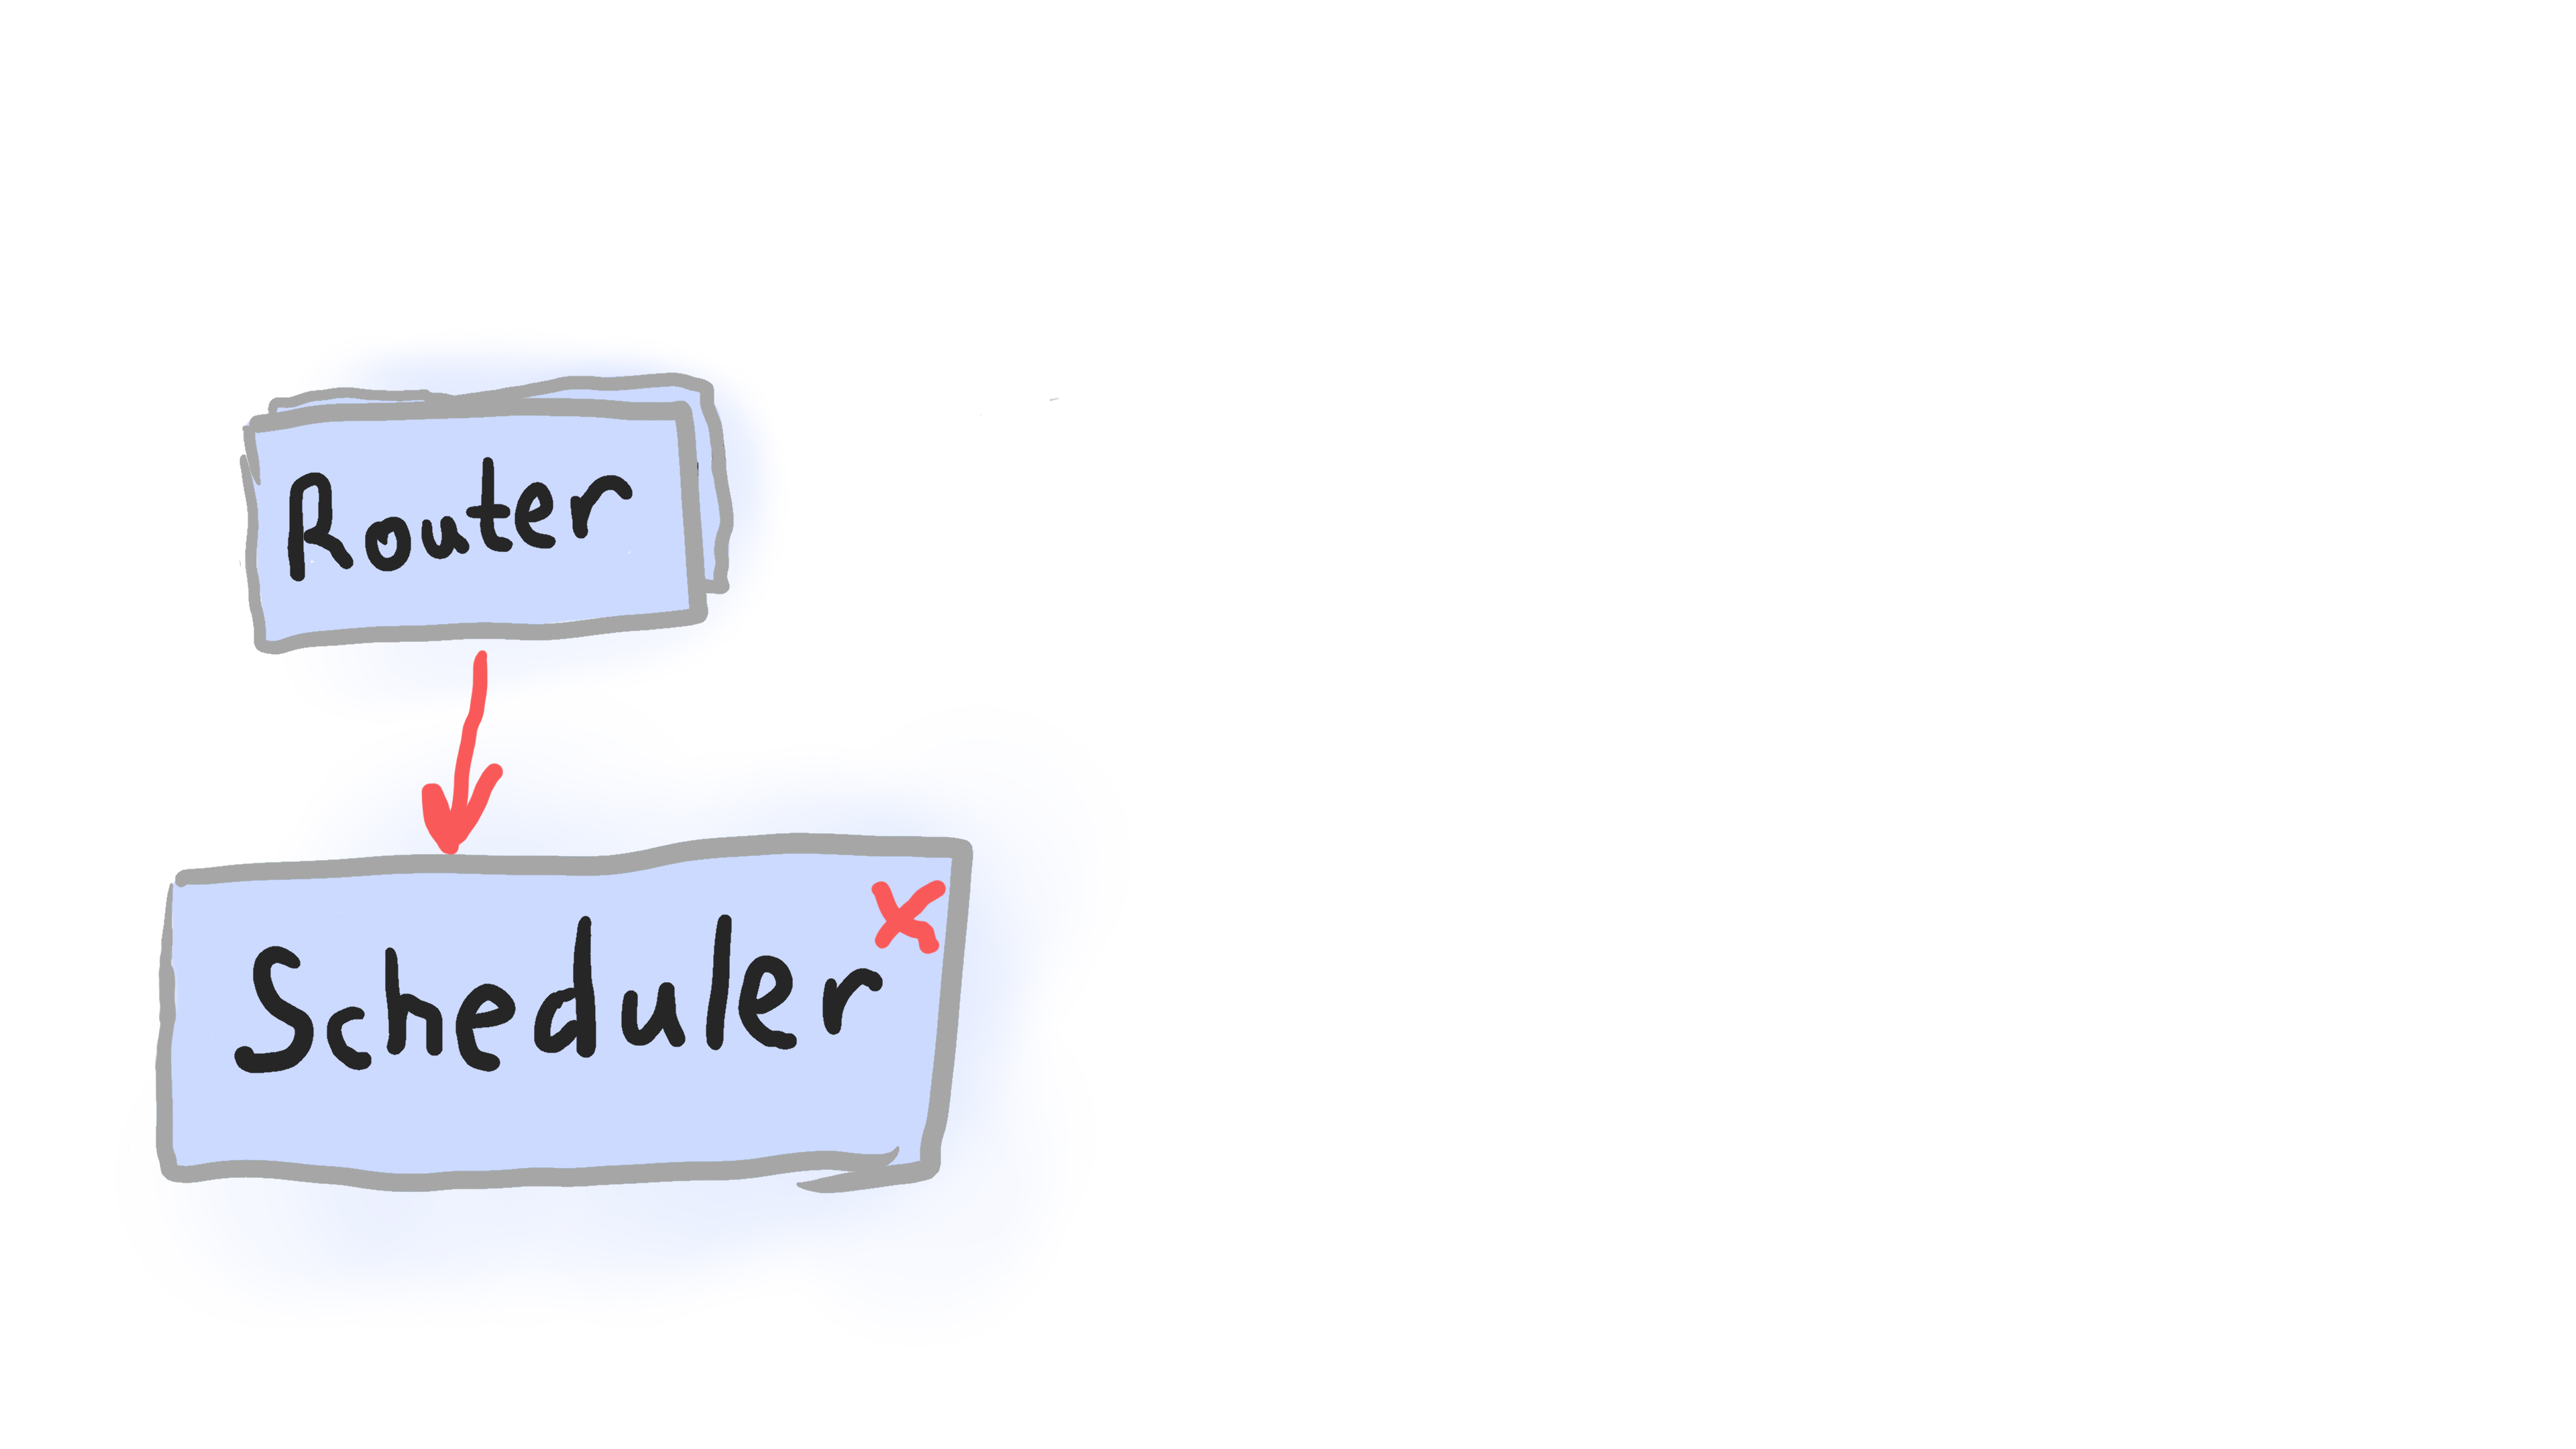 Router
Scheduler